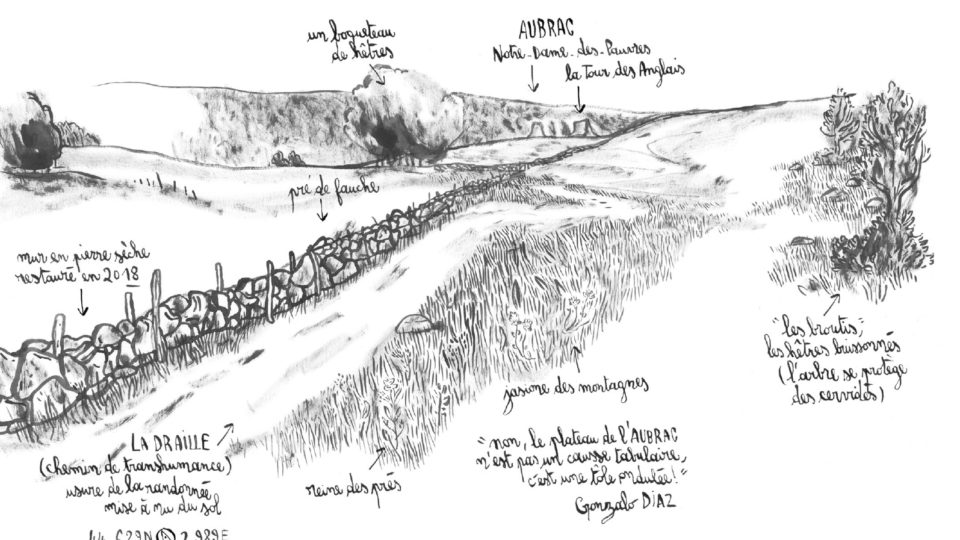 un boqueteau
de hêtres
AUBRAC
Notre-Dame-des-Pauvres
la Tour des Anglais
pré de fauche
mur en pierre sèche
restauré en 2018
"les broutis",
les hêtres buissonnés
(l'arbre se protège
des cervidés)
jasione des montagnes
LA DRAILLE
(chemin de transhumance)
usure de la randonnée
mise à nu du sol
reine des prés
"non, le plateau de l'AUBRAC
n'est pas un causse tabulaire,
c'est une tôle ondulée!"
Gonzalo DiAZ